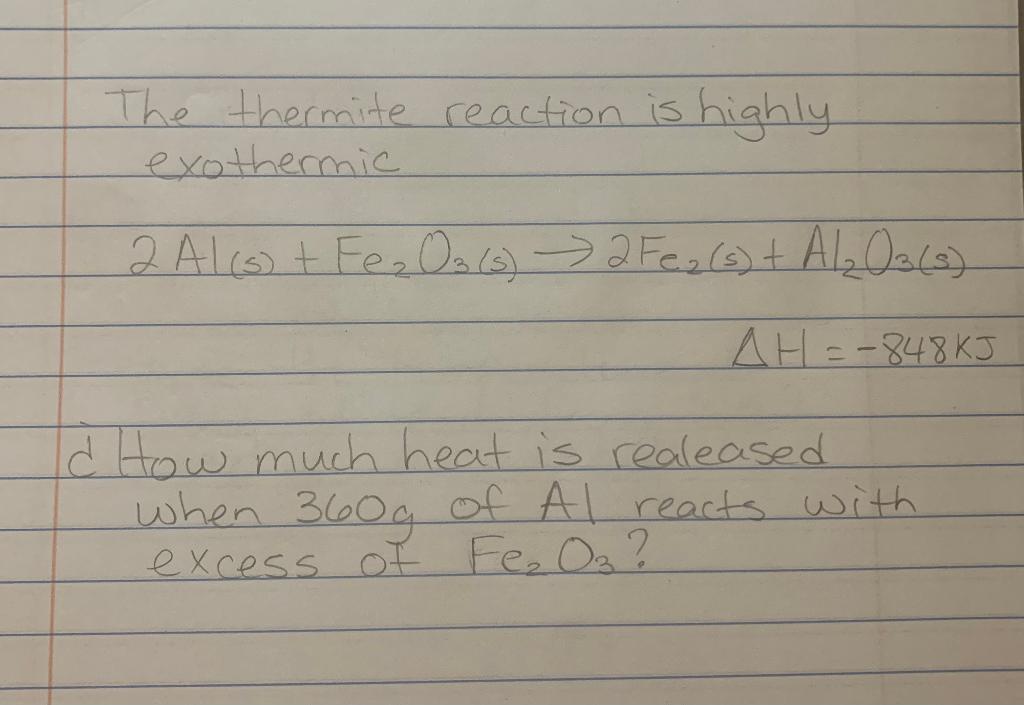 The thermite reaction is highly
exothermic
2 Al(s) + Fe₂O₃(s) → 2Fe₂(s) + Al₂O₃(s)
ΔH = -848KJ
¿ How much heat is realeased
when 360g of Al reacts with
excess of Fe₂O₃?